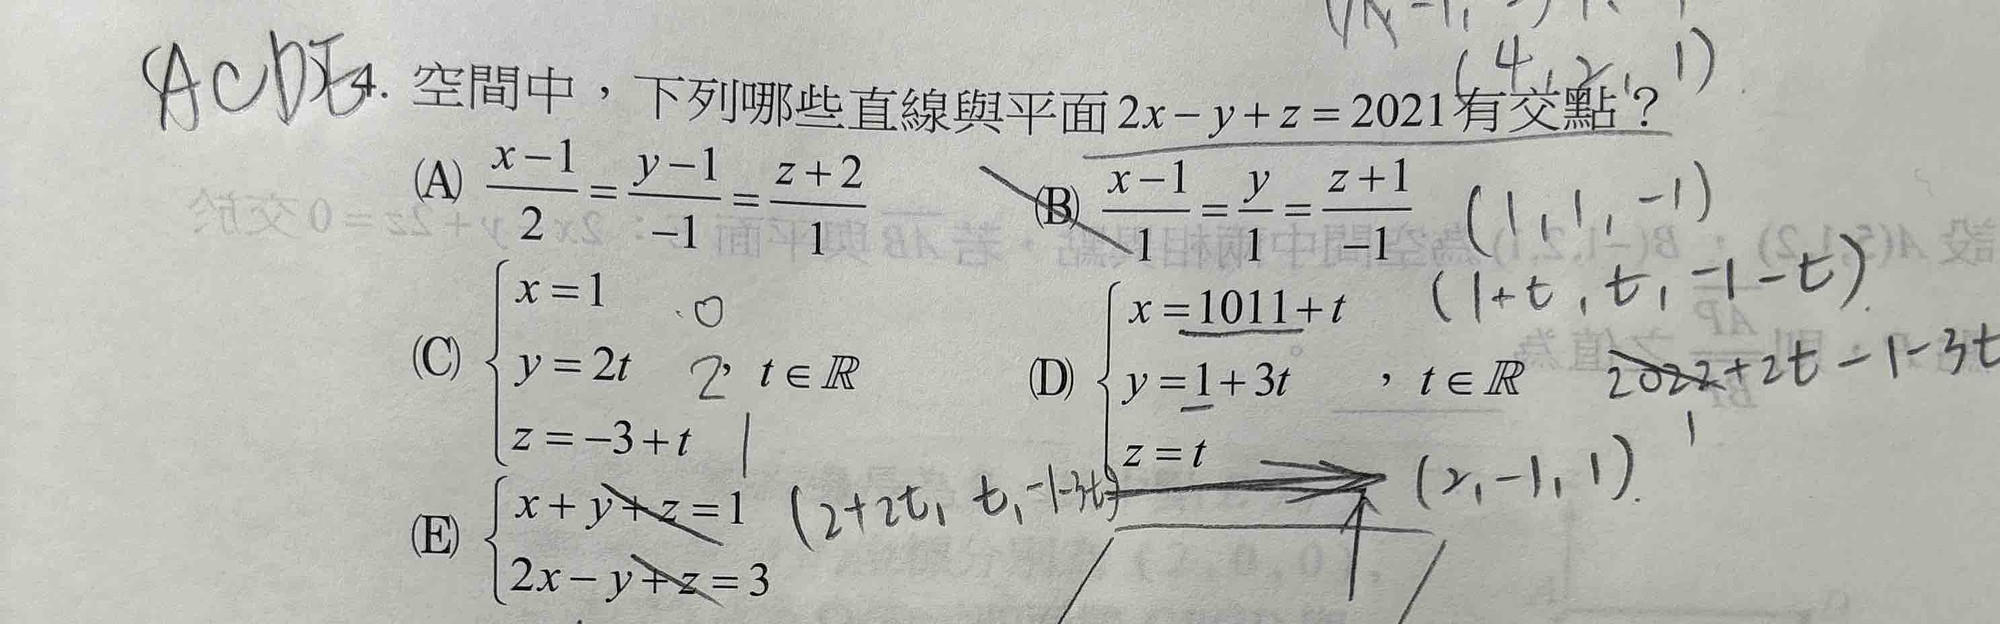 ACDE 4. 空間中，下列哪些直線與平面 2x − y + z = 2021 有交點？
(4, 2, 1)
(A) \frac{x-1}{2} = \frac{y-1}{-1} = \frac{z+2}{1}
(B) \frac{x-1}{1} = \frac{y}{1} = \frac{z+1}{-1} (1, 1, -1)
(1+t, t, -1-t)
(C) { x = 1 0
y = 2t 2 , t ∈ ℝ
z = −3 + t 1
(D) { x = 1011 + t
y = 1 + 3t , t ∈ ℝ 2022+2t-1-3t
z = t 1
(2, -1, 1)
(E) { x + y + z = 1 (2+2t, t, -1-3t)
2x − y + z = 3